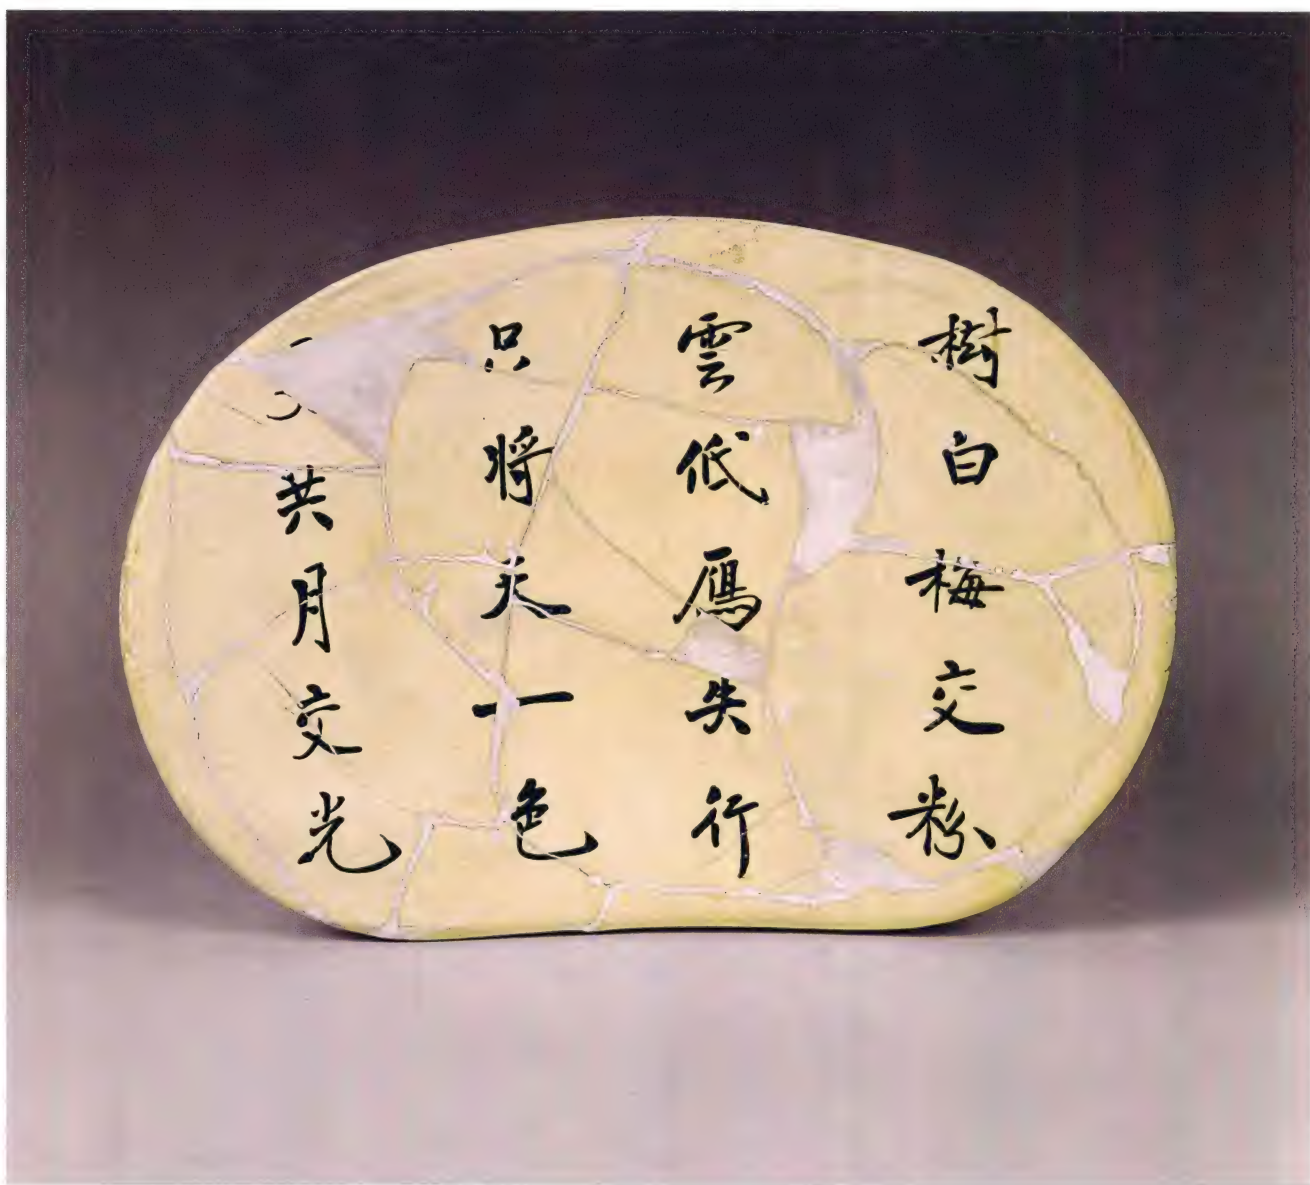 樹白梅交粉
雲低鴈失行
只将天一色
共月交光